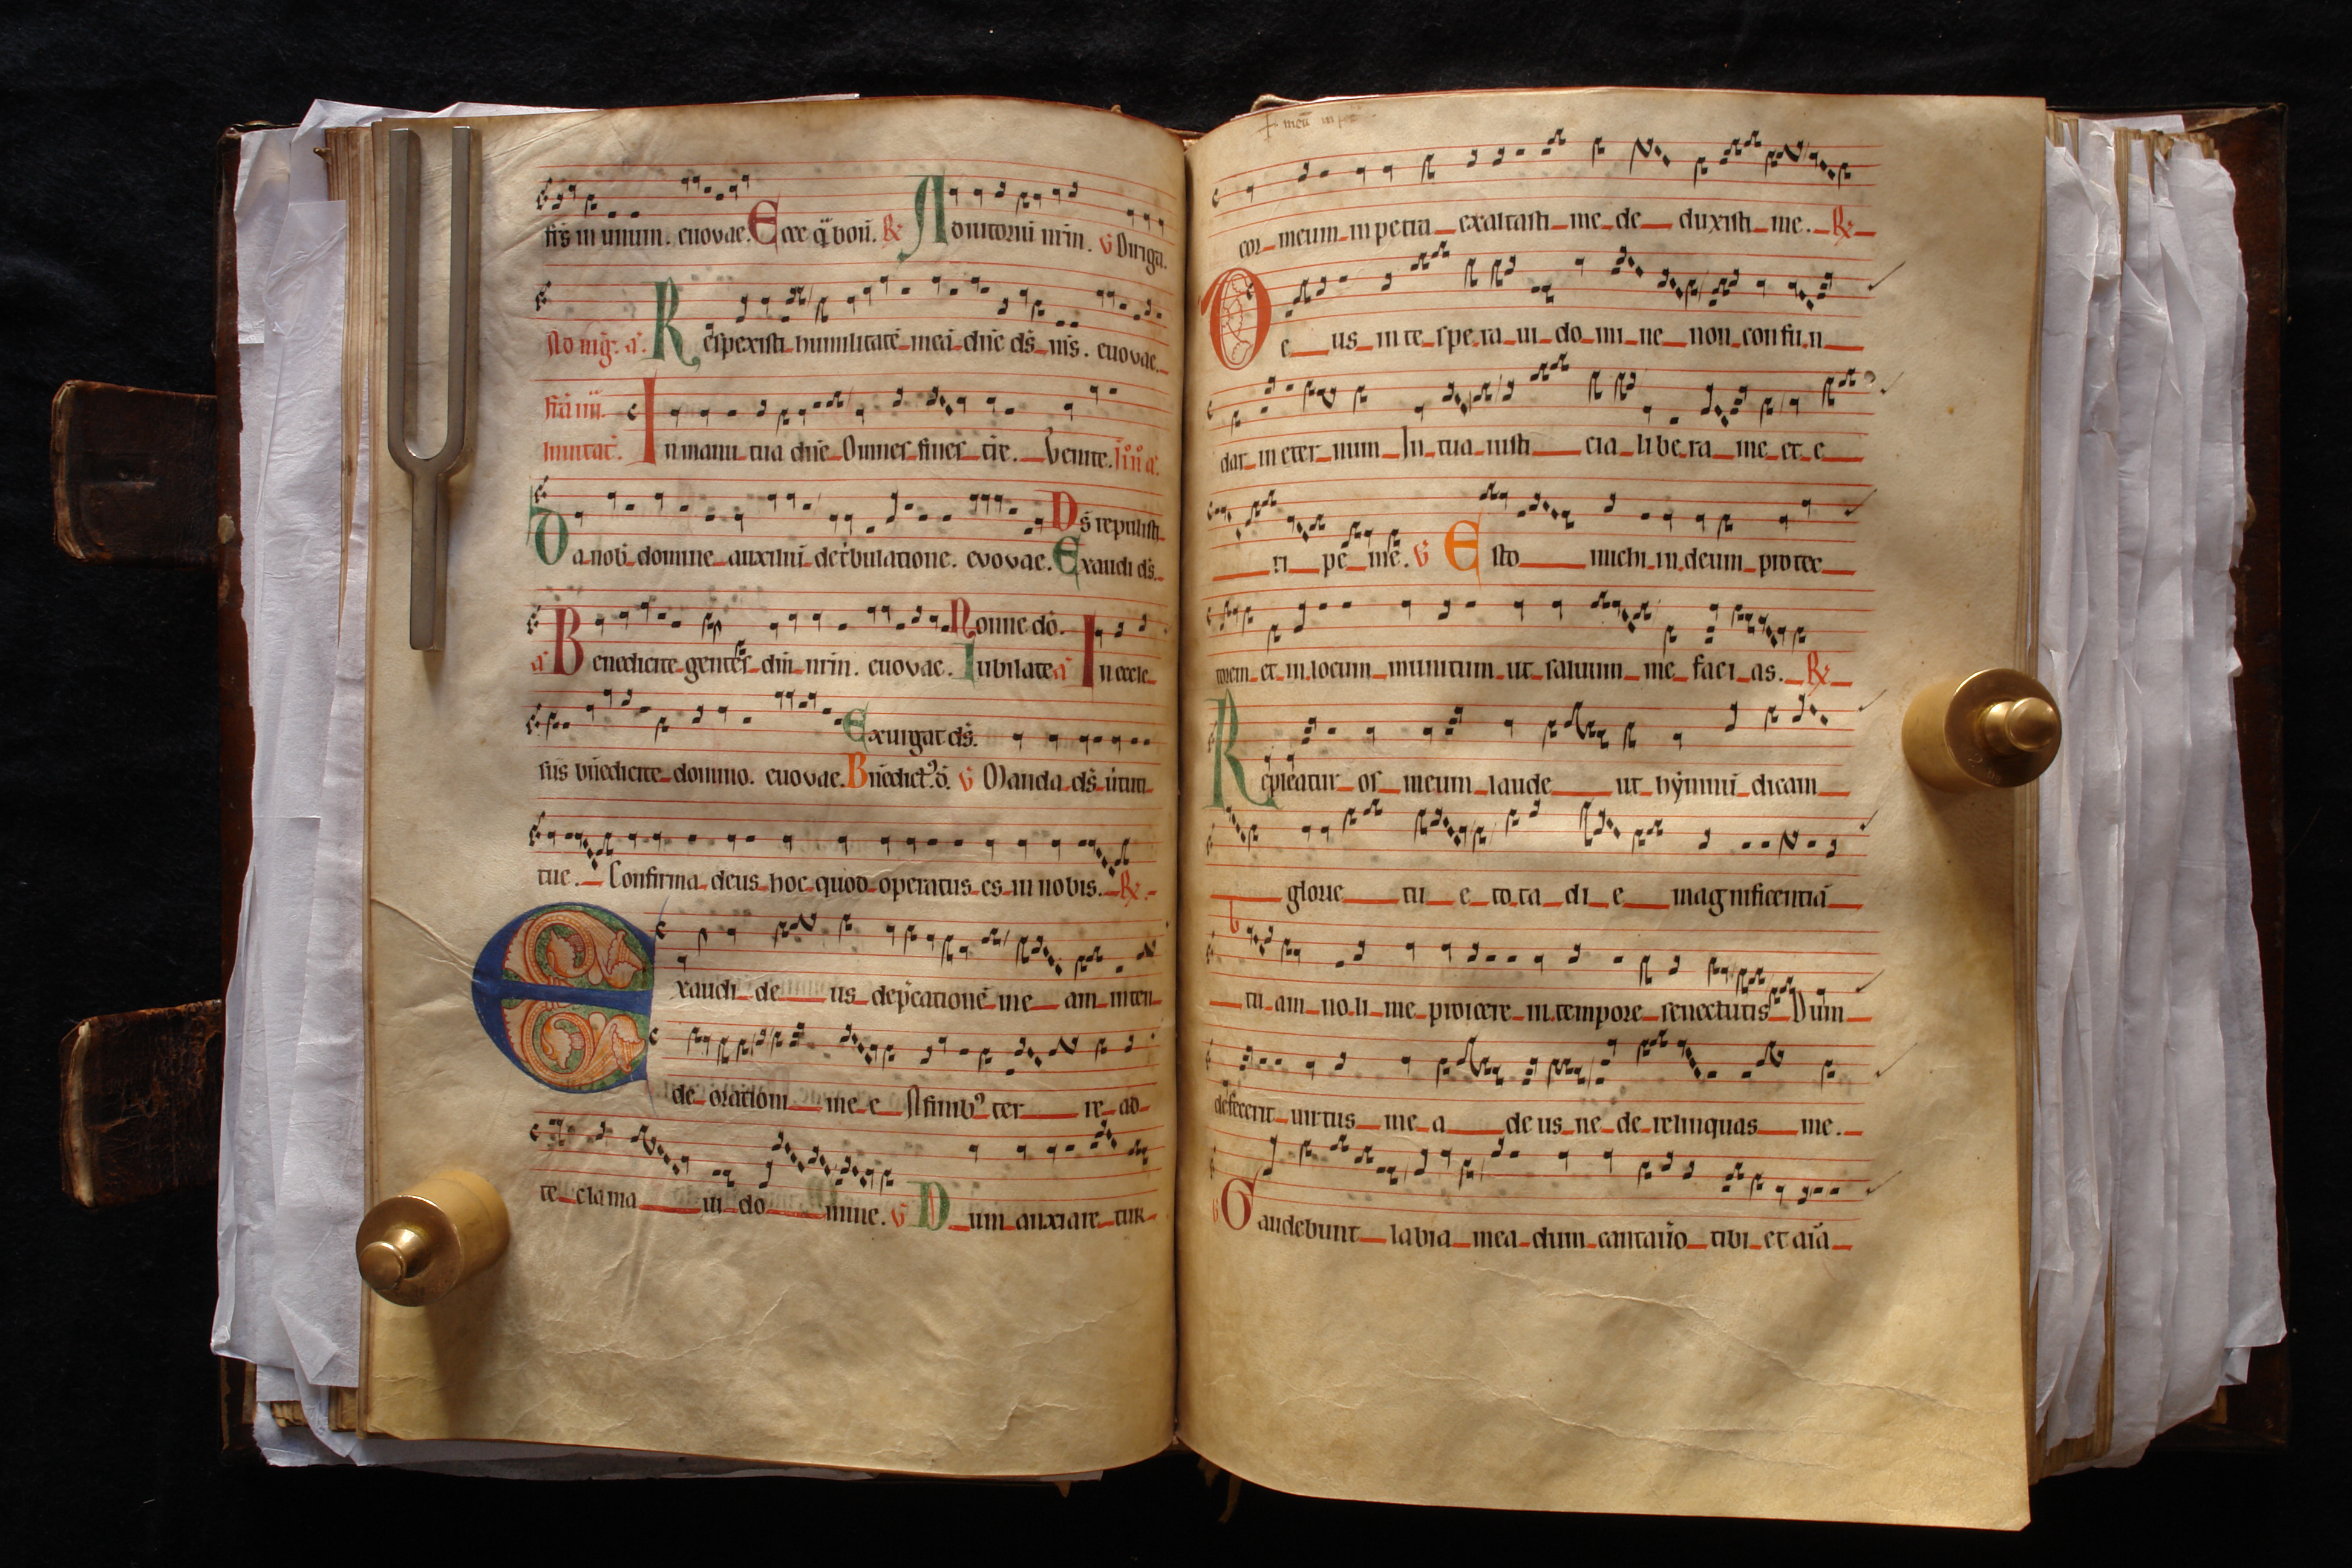 frs in unum. euouae. Ecce q̄ boñ. R̸ Adiutoriū nrm̄. V Diriga.
Respexisti humilitatē meā dñe dš ms. euouae.
In manu tua dñe Omnes fines tr̄e. Venite.
Da nob̄ domine auxiliū de tribulatione. evovae. Exaudi dš.
Dš repulisti
a Benedicite gentes dm̄ nrm̄. euovae. Iubilate a In eccle
Nonne dō.
siis bñedicite domino. euovae. Bñedict. V Manda dš uirtuti
Exurgat dš.
tue. Confirma deus hoc quod operatus es in nobis. R̸
Exaudi deus dep̄cationē meam inten
de orationi mee A finibꝰ terre ad
te clamaui domine. V Dum anxiare tur
cor meum in petra exaltasti me deduxisti me. R̸
Deus in te speraui domine non confun
dar in eternum In tua iusticia libera me et e
ripe me. V Esto michi in deum protec
torem et in locum munitum ut saluum me facias. R̸
Repleatur os meum laude ut hymnū dicam
glorie tue tota die magnificentiā
tuam noli me proicere in tempore senectutis Dum
defecerit uirtus mea deus ne derelinquas me.
V Gaudebunt labia mea dum cantau̅o tibi et aīa